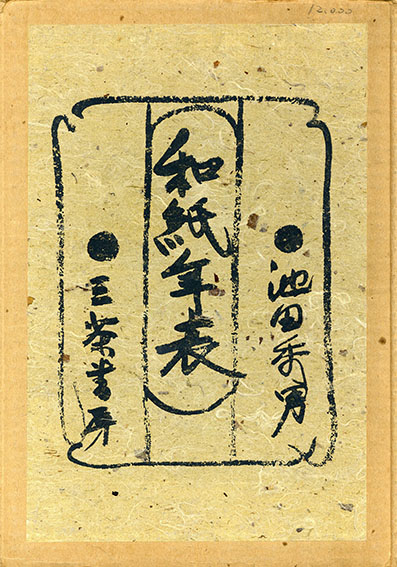 12,000
池田秀男
和紙年表
三茶書房